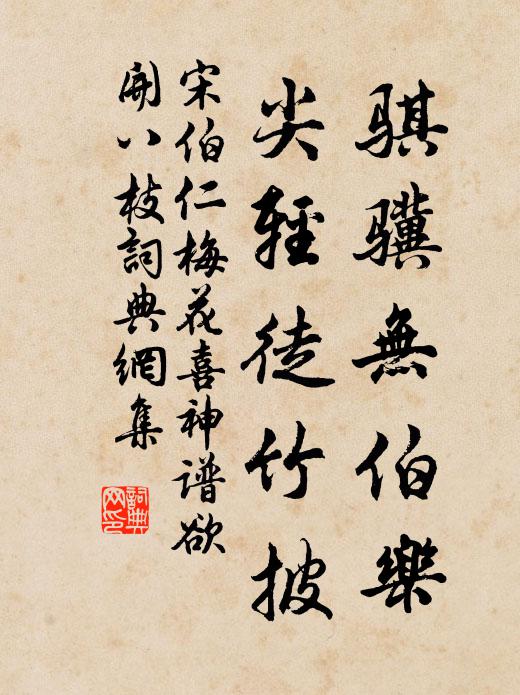 骐骥無伯樂
尖輕徒竹披
宋伯仁梅花喜神谱欲
開八枝詞典網集
詞典网印